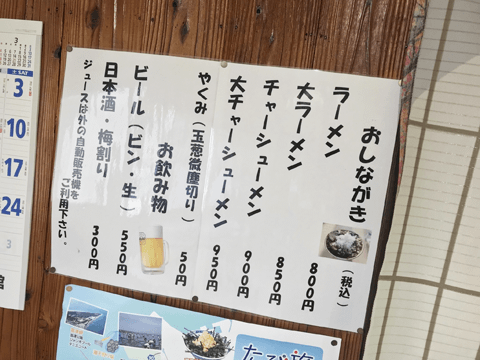 おしながき
(税込)
ラーメン 800円
大ラーメン 850円
チャーシューメン 900円
大チャーシューメン 950円
やくみ(玉葱微塵切り) 50円
お飲み物
ビール(ビン・生) 550円
日本酒・梅割り 300円
ジュースは外の自動販売機を
ご利用下さい。
土 SAT
3
10
17
24
3
館